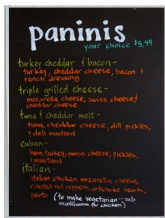 paninis
your choice $5.99
turkey cheddar & bacon-
turkey, cheddar cheese, bacon &
ranch dressing
triple grilled cheese-
mozarella cheese, swiss cheese &
cheddar cheese
tuna & cheddar melt-
tuna, cheddar cheese, dill pickles,
& deli mustard
cuban-
ham, turkey, swiss cheese, pickles,
& mustard
italian-
italian chicken mozarella cheese,
roasted red peppers, artichoke hearts,
pesto
(to make vegetarian - sub
mushrooms for chicken)